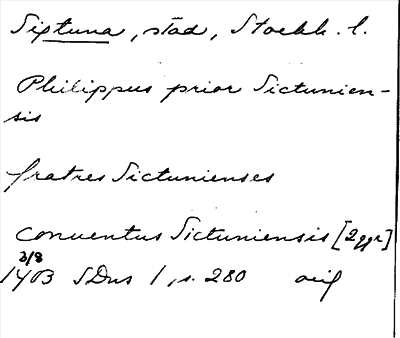 Sigtuna, stad, Stockh. l.
Philippus prior Sictunien-
sis
fratres Sictunienses
conventus Sictuniensis [2ggr]
3/8
1403 SDns 1, s. 280 orig